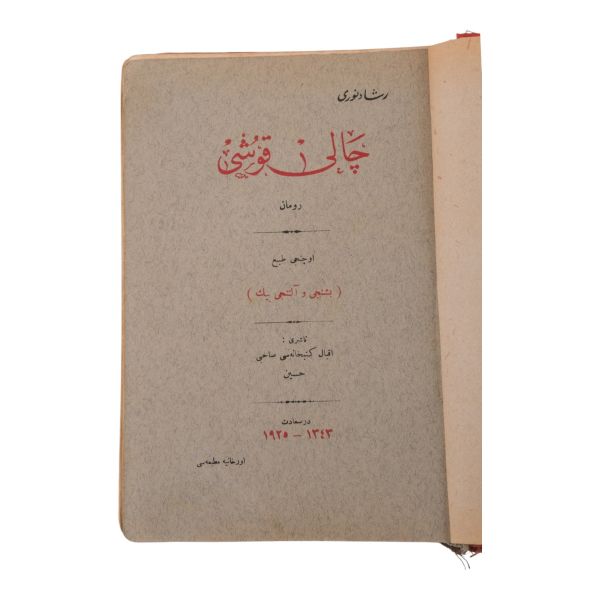 رشاد نوری
چالی قوشی
رومان
اوچنجی طبع
( بشنجی و آلتنجی بیك )
ناشری :
اقبال كتبخانه‌سی صاحبی
حسین
درسعادت
١٣٤٣ – ١٩٢٥
اورخانیه مطبعه‌سی